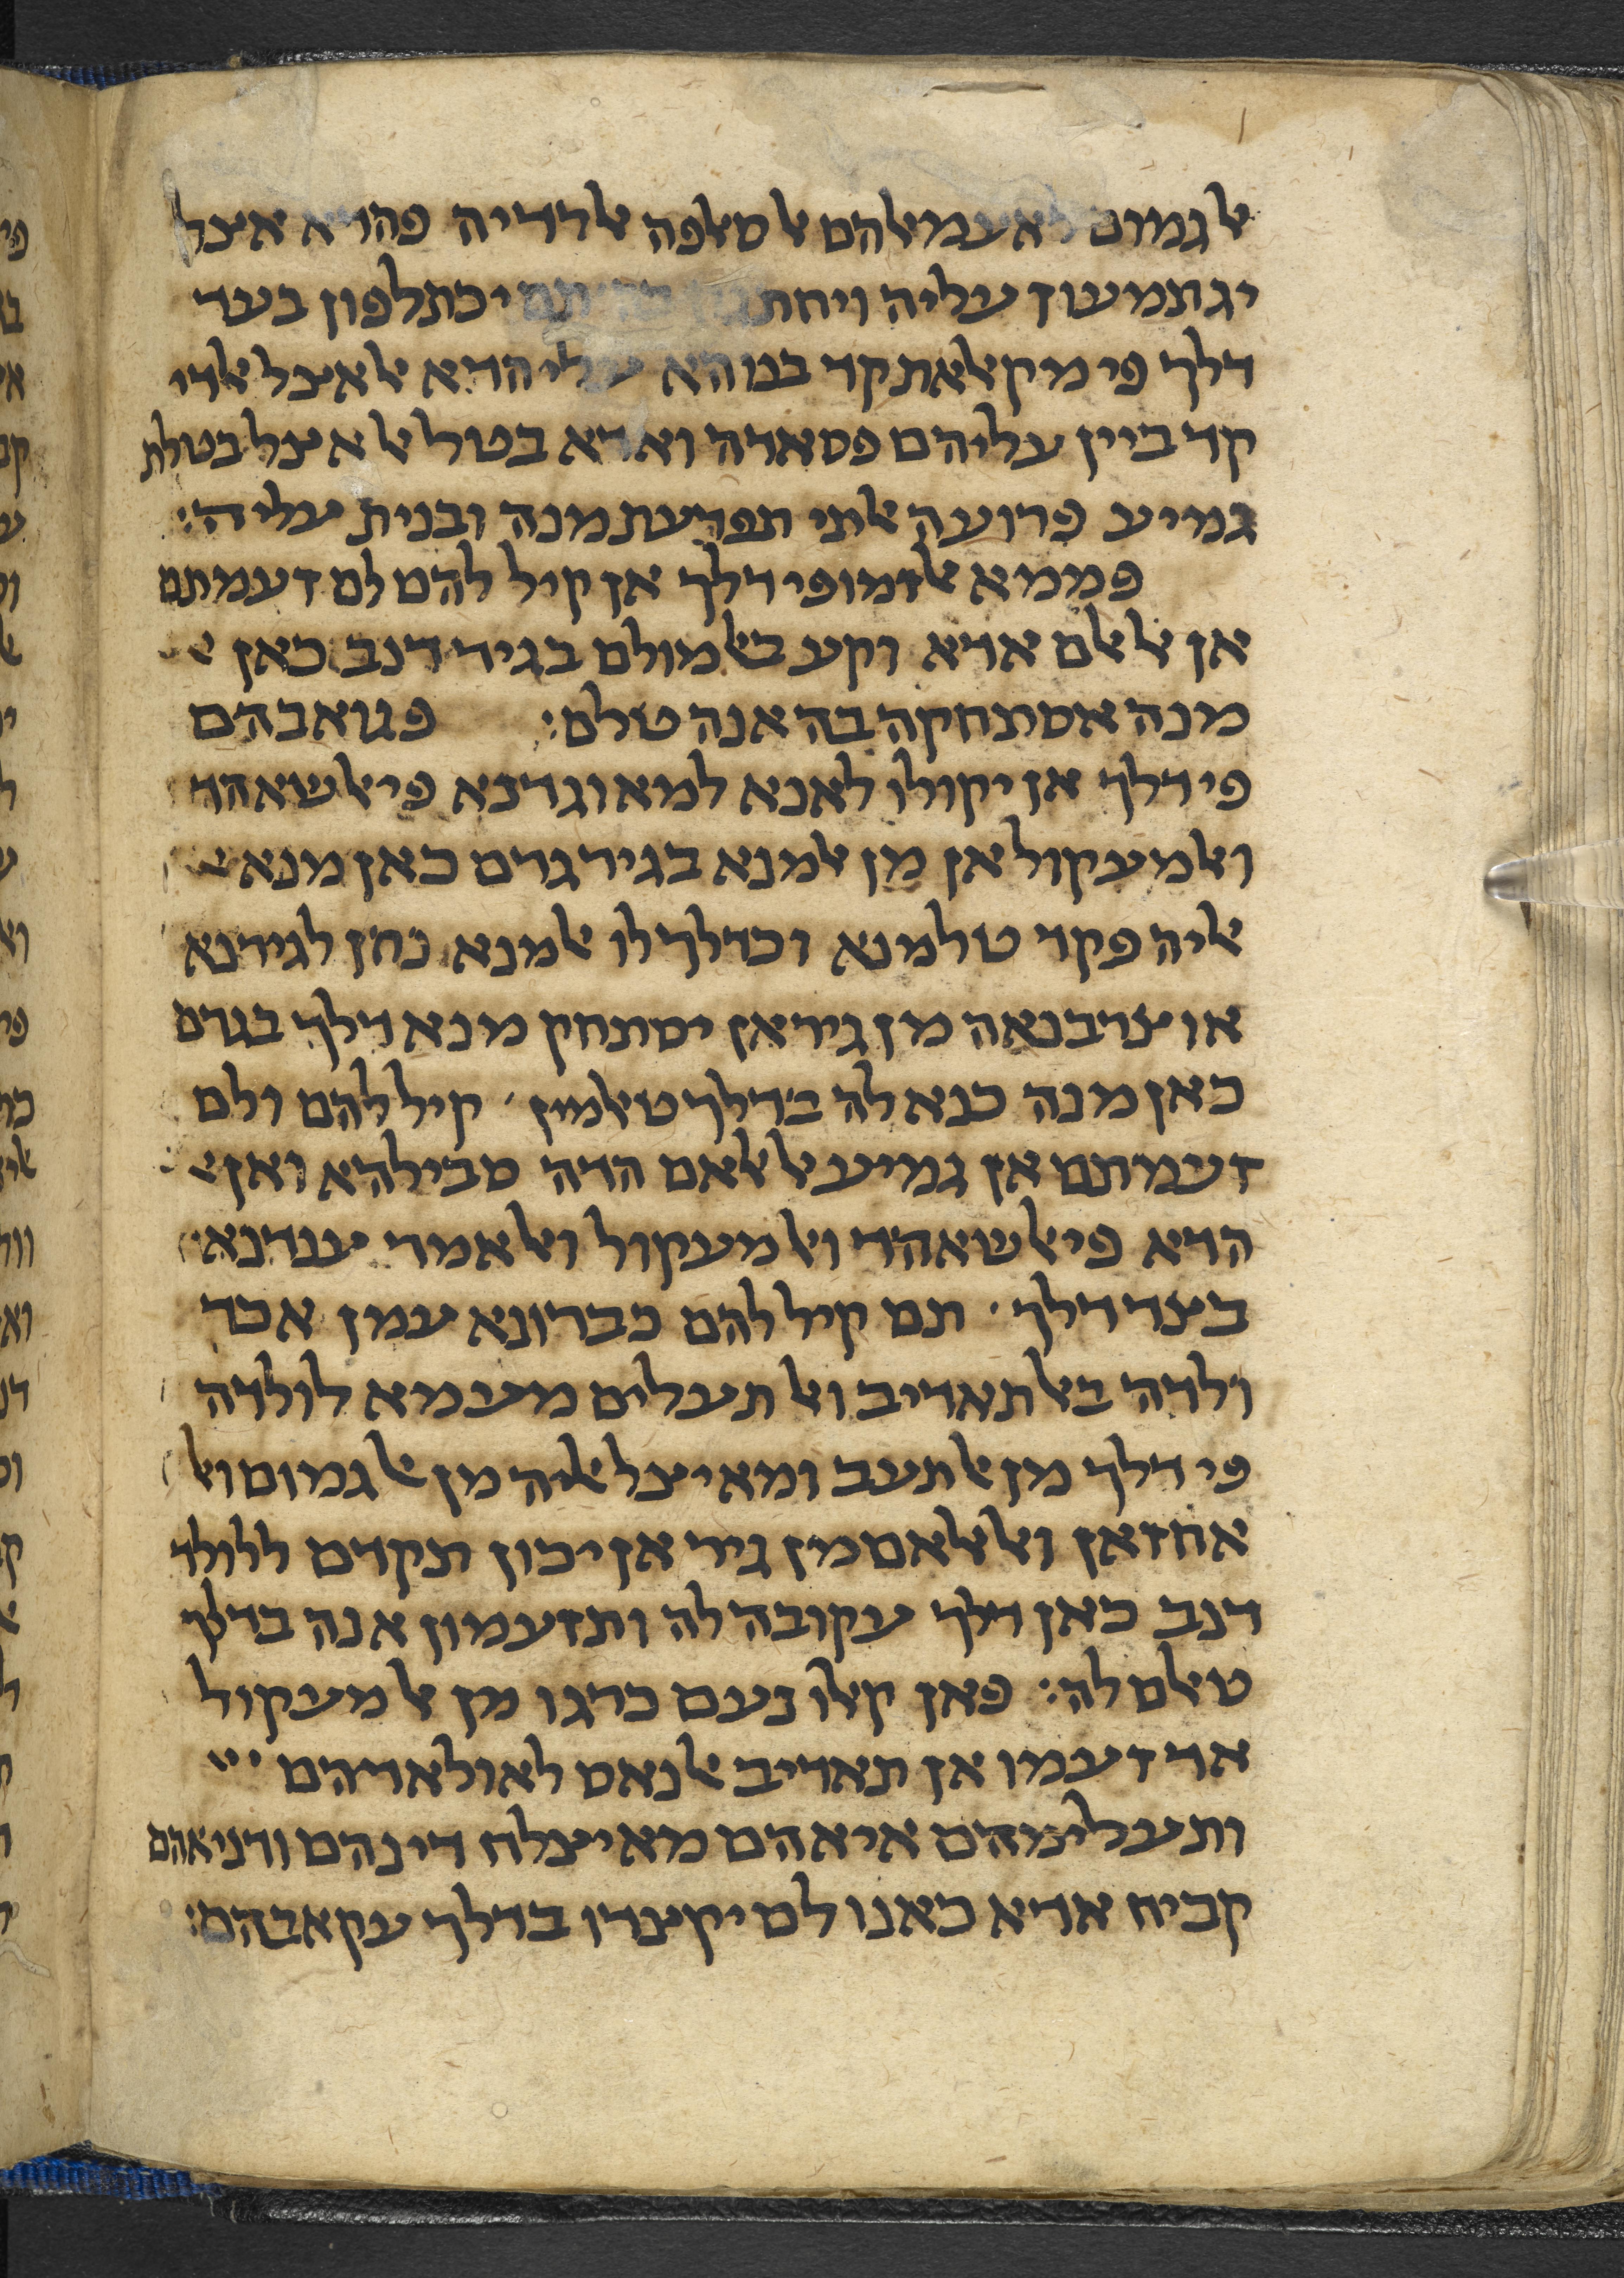 אלגמום לאעמאלהם אלסאלפה אלרדיה פהדא אצל
יגתמעון עליה ויחת יכתלפון בעד
דלך פי מקאלאת קד בנוהא עלי הדא אלאצל אלדי
קד ביין עליהם פסאדה ואדא בטל אלאצל בטלת
גמיע פרועה אלתי תפרעת מנה ובנית עליה:
פממא אלזמו פי דלך אן קיל להם לם זעמתם
אן אלאלם אדא וקע באלמולם בגיר דנב כאן
מנה אסתחקה בה אנה טלם: פגואבהם
פי דלך אן יקולו לאנא למא וגדנא פי אלשאהד
ואלמעקול אן מן אלמנא בגיר גרם כאן מנא
אליה פקד טלמנא וכדלך לו אלמנא נחן לגירנא
או צרבנאה מן גיר אן יסתחק מנא דלך בגרם
כאן מנה כנא לה בדלך טאלמין קיל להם ולם
זעמתם אן גמיע אלאלאם הדה סבילהא ואן
הדא פי אלשאהד ואלמעקול ואלאמר ענדנא
בצד דלך תם קיל להם כברונא עמן אכד
ולדה באלתאדיב ואלתעלים מעמא לולדה
פי דלך מן אלתעב ומא יצל אליה מן אלגמום ואל
אחזאן ואלאלאם מן גיר אן יכון תקדם ללולד
דנב כאן דלך עקובה לה ותזעמון אנה בדלך
טאלם לה: פאן קאלו נעם כרגו מן אלמעקול
אד זעמו אן תאדיב אלנאס לאולאדהם
ותעלימהם איאהם מא יצלח דינהם ודניאהם
קביח אדא כאנו לם יקצדו בדלך עקאבהם: